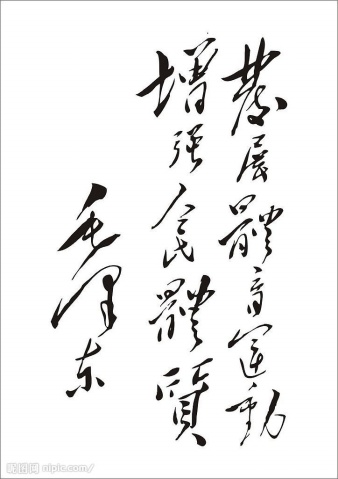 發展體育運動
增强人民體質
毛泽东
昵图网 nipic.com/